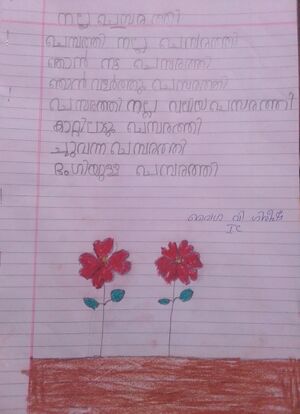 നല്ല ചെമ്പരത്തി
ചെമ്പരത്തി നല്ല ചെമ്പരത്തി
ഞാൻ നട്ട ചെമ്പരത്തി
ഞാൻ വളർത്തും ചെമ്പരത്തി
ചെമ്പരത്തി നല്ല വലിയ ചെമ്പരത്തി
കാറ്റിലാടും ചെമ്പരത്തി
ചുവന്ന ചെമ്പരത്തി
ഭംഗിയുള്ള ചെമ്പരത്തി
വൈഗ വി ഗിരീഷ്
I C